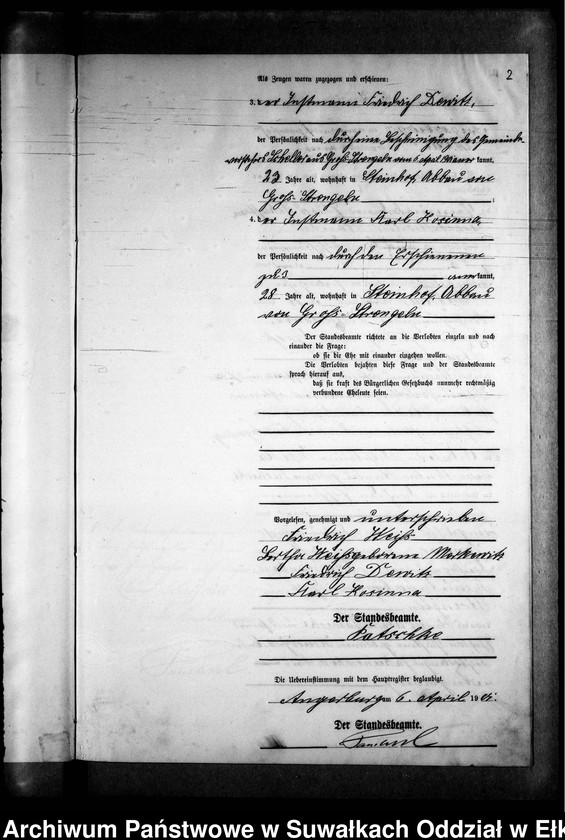 2
Als Zeugen waren zugezogen und erschienen:
3. der Instmann Friedrich Dewitz,
der Persönlichkeit nach durch eine Bescheinigung des Gemeinde-
vorstehers aus Groß Strengeln vom 6 April kannt,
23 Jahre alt, wohnhaft in Steinhof, Abbau von
Groß Strengeln ;
4. der Instmann Karl Kosinna,
der Persönlichkeit nach durch den Erschienenen
zu 3 kannt,
28 Jahre alt, wohnhaft in Steinhof, Abbau
von Groß Strengeln
Der Standesbeamte richtete an die Verlobten einzeln und nach
einander die Frage:
ob sie die Ehe mit einander eingehen wollen.
Die Verlobten bejahten diese Frage und der Standesbeamte
sprach hierauf aus,
daß sie kraft des Bürgerlichen Gesetzbuchs nunmehr rechtmäßig
verbundene Eheleute seien.
Vorgelesen, genehmigt und unterschrieben
Friedrich Weiß
Bertha Weiß geborene Markewitz
Friedrich Dewitz
Karl Kosinna
Der Standesbeamte.
Patschke
Die Uebereinstimmung mit dem Hauptregister beglaubigt.
Angerburg am 6. April 19
Der Standesbeamte.
Archiwum Państwowe w Suwałkach Oddział w Ełk